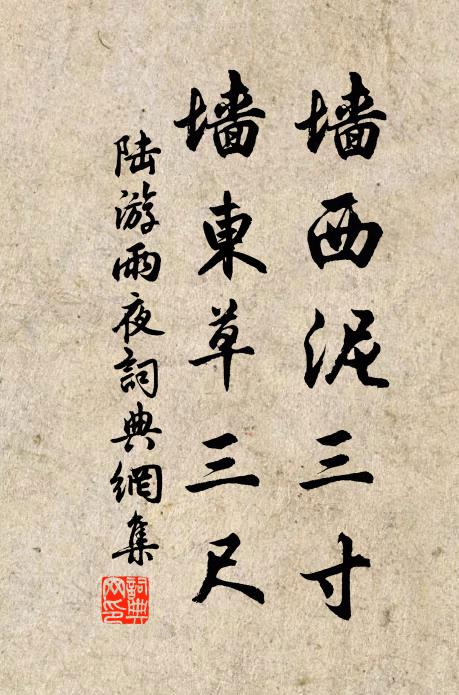 墙西泥三寸
墙東草三尺
陆游雨夜詞典網集
詞典网印